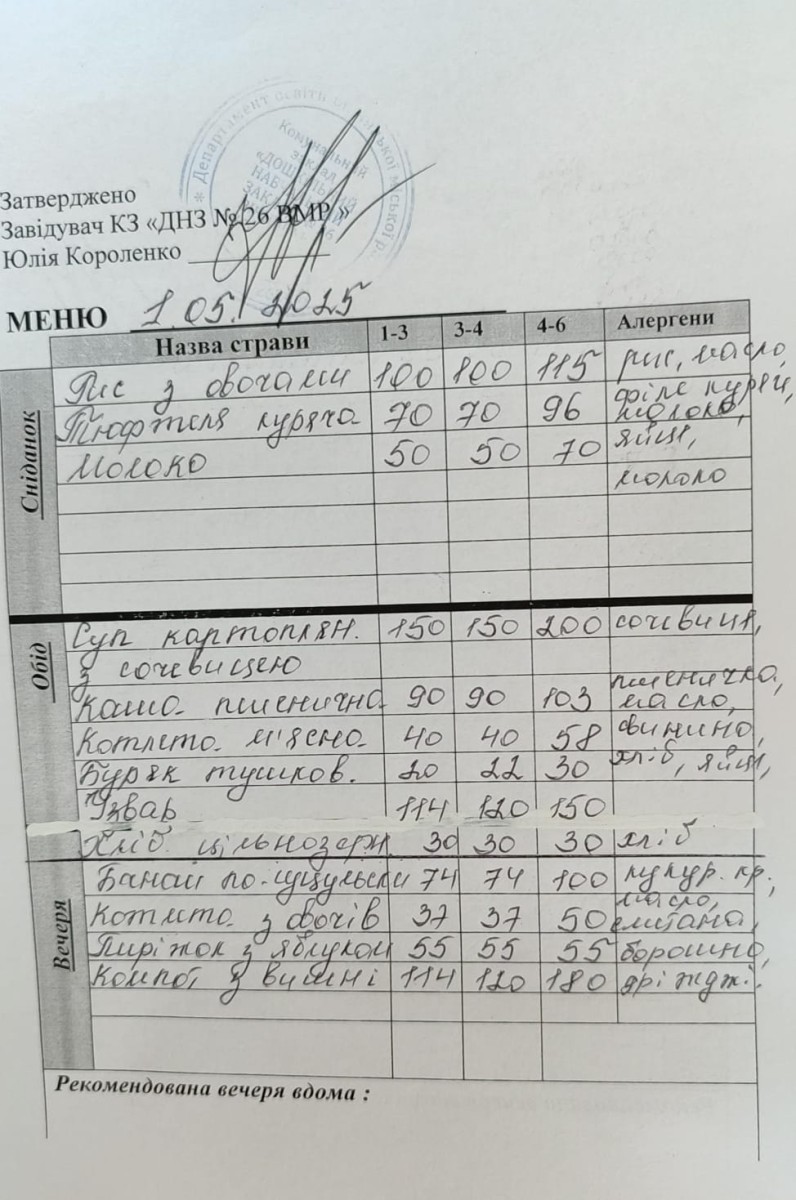 * Департамент освіти
Комунальний
заклад
«ДОШКІЛЬНИЙ
Затверджено
Завідувач КЗ «ДНЗ № 26 ВМР »
Юлія Короленко
МЕНЮ 1.05.2025
Назва страви 1-3 3-4 4-6 Алергени
Сніданок
Рис з овочами 100 100 115 рис, масло,
Тюфтеля куряча 70 70 96 філе куряч, молоко,
Молоко 50 50 70 яйця,
молоко
Обід
Суп картоплян. 150 150 200 сочевиця,
з сочевицею
Каша пшенична 90 90 103 пшенична, масло,
Котлета м'ясна 40 40 58 свинина,
Буряк тушков. 20 22 30 хліб, яйця,
Узвар 114 120 150
Хліб цільнозерн 30 30 30 хліб
Вечеря
Банош по-гуцульськи 74 74 100 кукур. кр.,
Котлета з овочів 37 37 50 масло, сметана,
Пиріжок з яблуком 55 55 55 борошно,
Компот з вишні 114 120 180 дріжджі.
Рекомендована вечеря вдома :